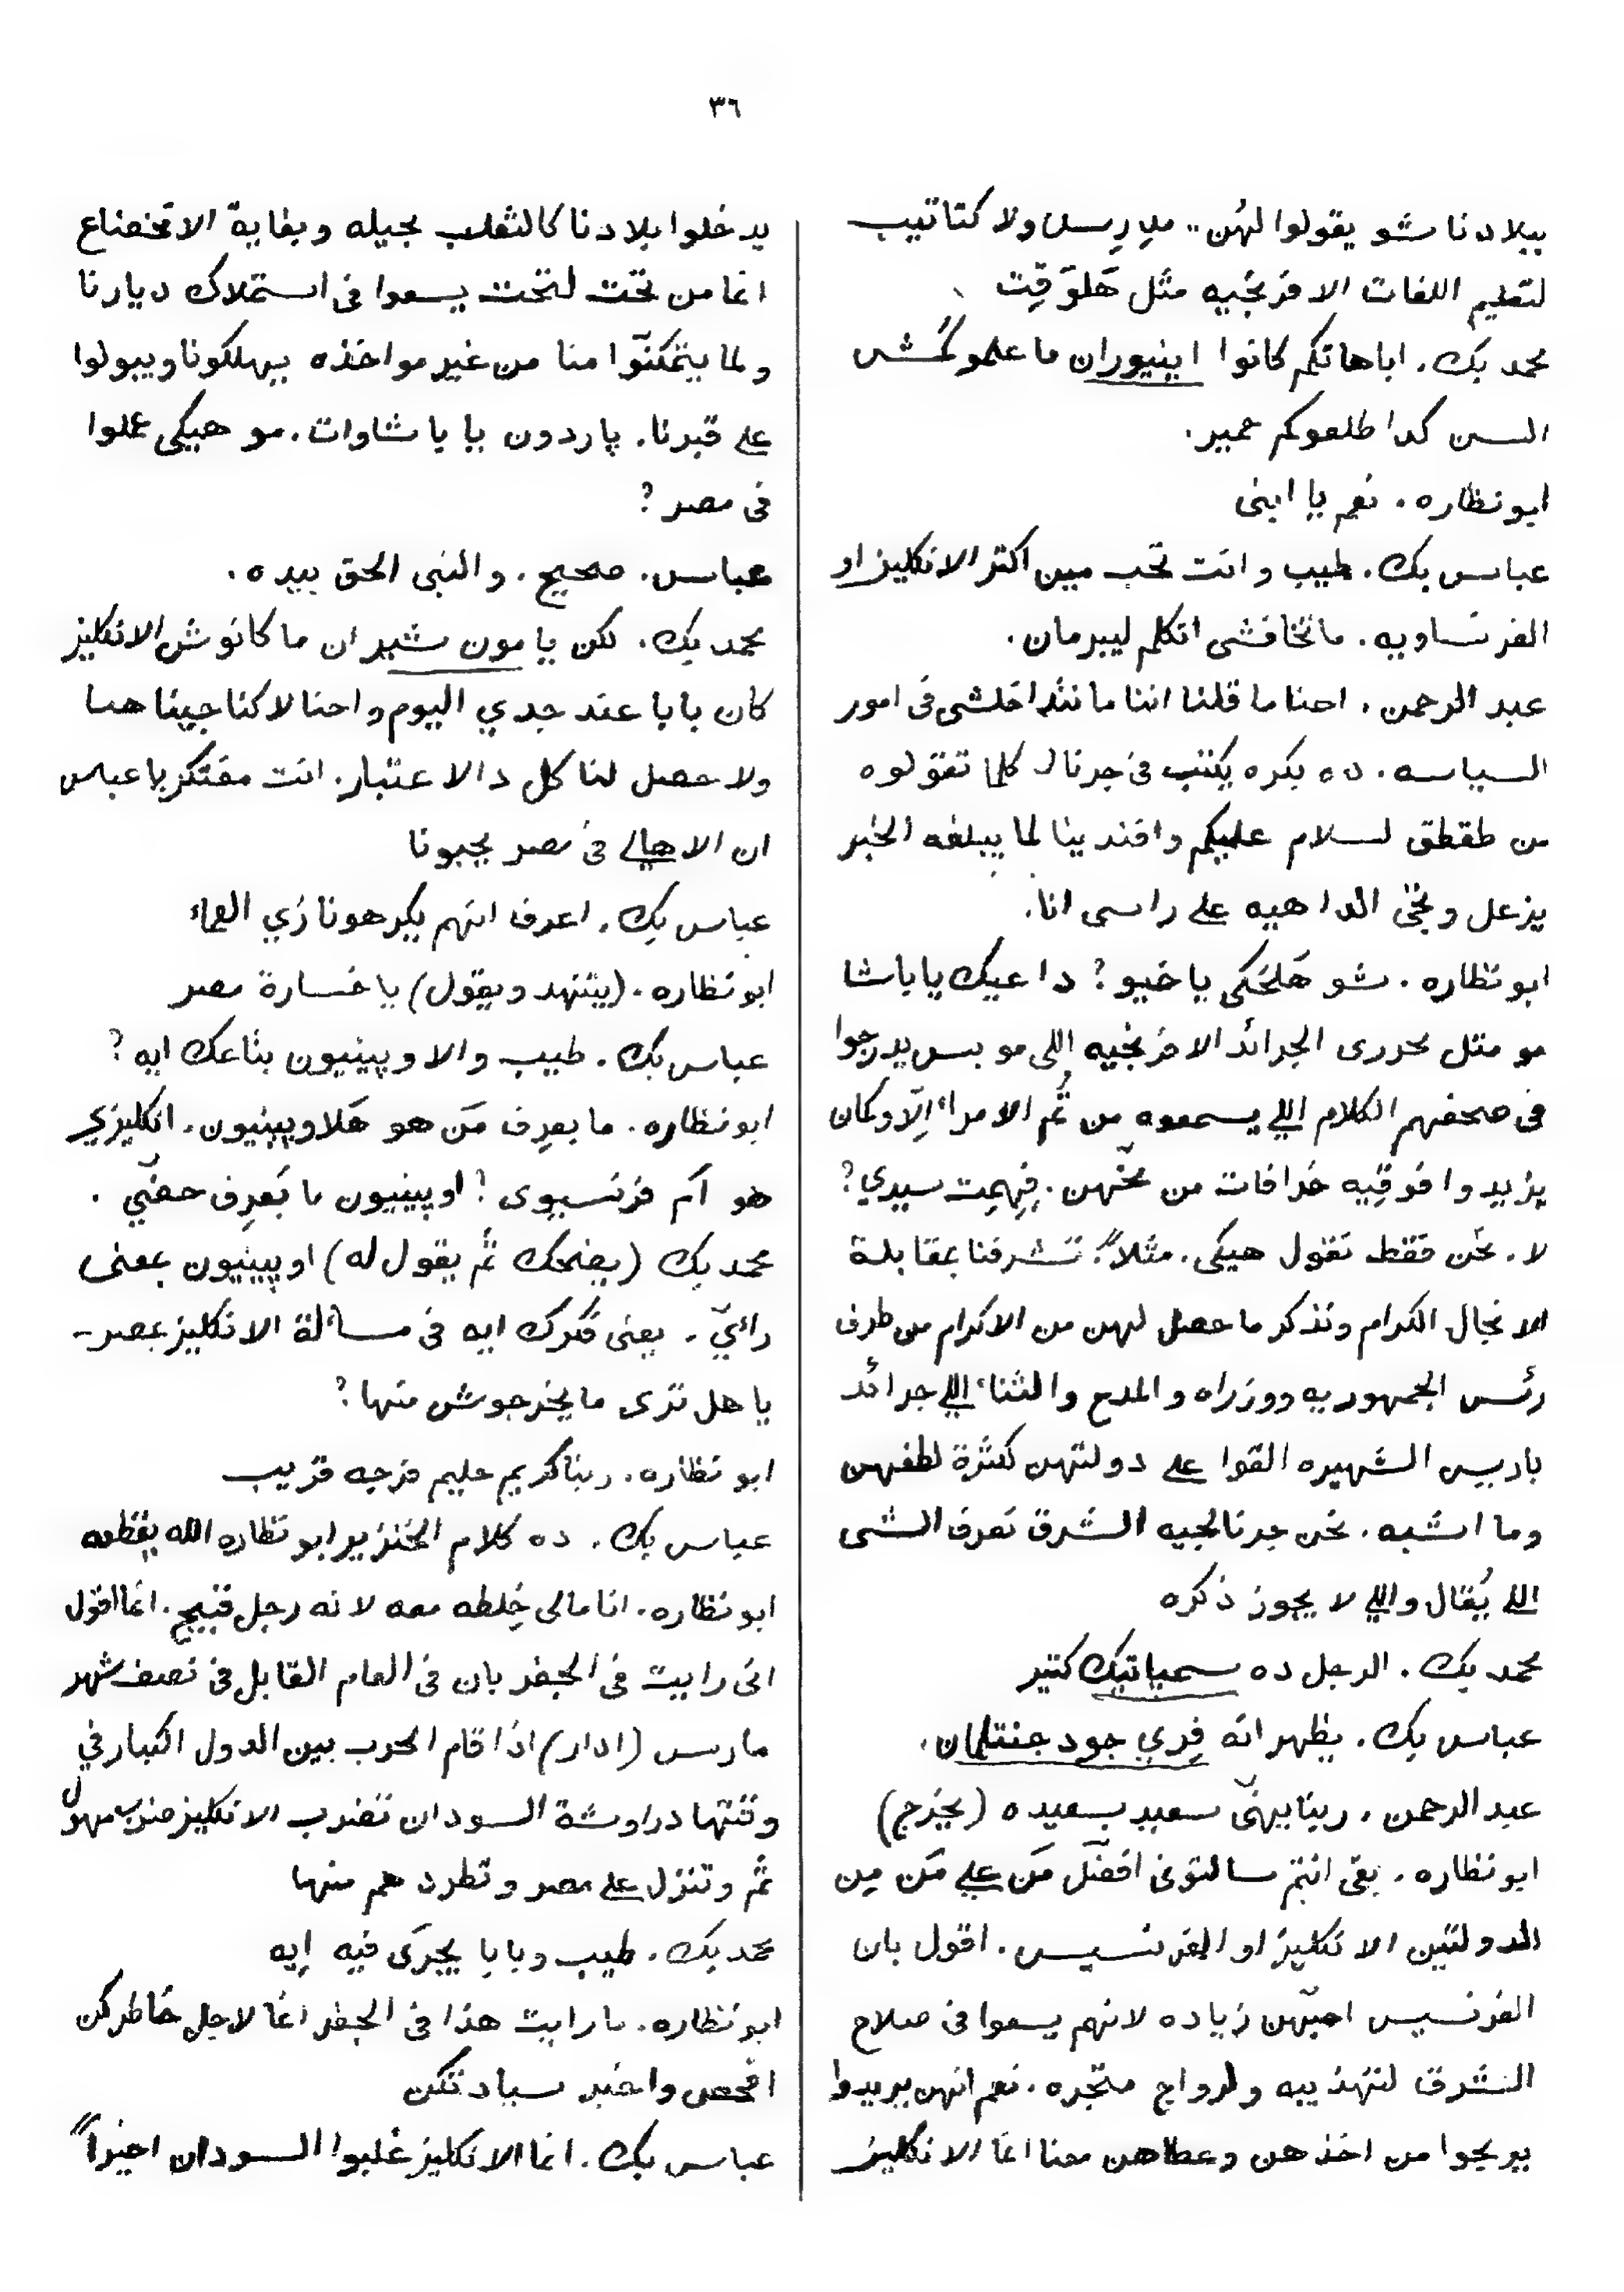 ٣٦
ببلادنا شو يقولوا لهُن .. مدارس ولا كتاتيب
لتعليم اللغات الافرنجيه مثل هَلوَقِت
محمد بك . اباهاتكم كانوا اينيوران ما علموكُمش
السن كدا طلعوكم حمير .
ابونظاره . نعم يا ابنى
عباس بك . طيب وانت تحب مين اكتر الانكليز او
الفرنساويه . ماتخافشى اتكلم ليبرمان .
عبد الرحمن . احنا ما قلنا اننا ما نتداخلشى فى امور
السياسه . ده بكره يكتب فى جرناله كلما تقولوه
من طقطق لسلام عليكم وافندينا لما يبلغه الخبر
يزعل وتجى الداهيه على راسى انا .
ابو نظاره . شو هَلحكى ياخيو ? داعيك ياباشا
مو متل محررى الجرائد الافرنجيه اللى مو بس يدرجوا
فى صحفهم الكلام اللي يسمعوه من ثُم الامراء اِلّا وكان
يزيدوا فوقِيه خرافات من مخّهن . فِهِمِت سيدي ?
لا . نحن فقط نقول هيكى . مثلاً : تشرفنا بمقابلة
الانجال الكرام ونذكر ما حصل لهن من الاكرام من طرف
رئس الجمهوريه ووزراه والمدح والثناء اللي جرائد
باريس الشهيره القوا على دولتهن كثرة لطفهن
وما اشبه . نحن جرنالجيه الشرق نعرف الشى
اللي يُقال واللي لا يجوز ذكره
محمد بك . الرجل ده سمباتيك كتير
عباس بك . يظهر انه فِري جود جنتلمان .
عبد الرحمن . ربنا يهنّى سعيد بسعيده (يخرج)
ابونظاره . بقى انتم سالتونى افضّل مَن على مَن مِن
الدولتين الانكليز او الفرنسيس . اقول بان
الفرنسيس احبّهن زياده لانهم يسعوا فى صلاح
الشرق لتهذيبه ولرواج متجره . نعم انهن يريدوا
يربحوا من اخذهن وعطاهن معنا انما الانكليز
يدخلوا بلادنا كالثعلب بحيله وبغاية الاتخضاع
انما من تحت لتحت يسعوا فى استملاك ديارنا
ولما يتمكنّوا منا من غير مواخذه يهلكونا ويبولوا
على قبرنا . پاردون يا باشاوات . مو هيكى عملوا
فى مصر ?
عباس . صحيح . والنبى الحق بيده .
محمد بك . لكن يا مون شير ان ما كانوش الانكليز
كان بابا عند جدي اليوم واحنا لا كنا جينا هنا
ولا حصل لنا كل دا الاعتبار . انت مفتكر يا عباس
ان الاهالي فى مصر يحبونا
عباس بك . اعرف انهم يكرهونا زي العماء
ابو نظاره . (يتنهد ويقول) يا خسارة مصر
عباس بك . طيب والاوپينيون بتاعك ايه ?
ابو نظاره . ما بعرِف مَن هو هَلاوپينيون . انكليزي
هو اَم فرنسيوى ? اوپينيون ما بَعرِف حضّي .
محمد بك (يضحك ثم يقول له) اوپينيون بمعنى
رائيّ . يعنى فكرك ايه فى مسالة الانكليز بمصر –
يا هل ترى ما يخرجوش منها ?
ابو نظاره . ربنا كريم حليم فرجه قريب
عباس بك . ده كلام الخنزير ابو نظاره الله يقطعه
ابو نظاره . انا مالى خِلطه معه لانه رجل قبيح . انما اقول
انى رايت فى الجفر بان فى العام القابل فى نصف شهر
مارس (ادار) اذا قام الحرب بين الدول الكبار فى
وقتها دراوشة السودان تضرب الانكليز ضرب مهول
ثم وتنزل على مصر وتطرد هم منها
محمد بك . طيب وبابا يجرَى فيه اِيه
ابو نظاره . ما رايت هذا فى الجفر انما لاجل خاطركن
افحص واخبر سيادتكن
عباس بك . انما الانكليز غلبوا السودان اخيراً